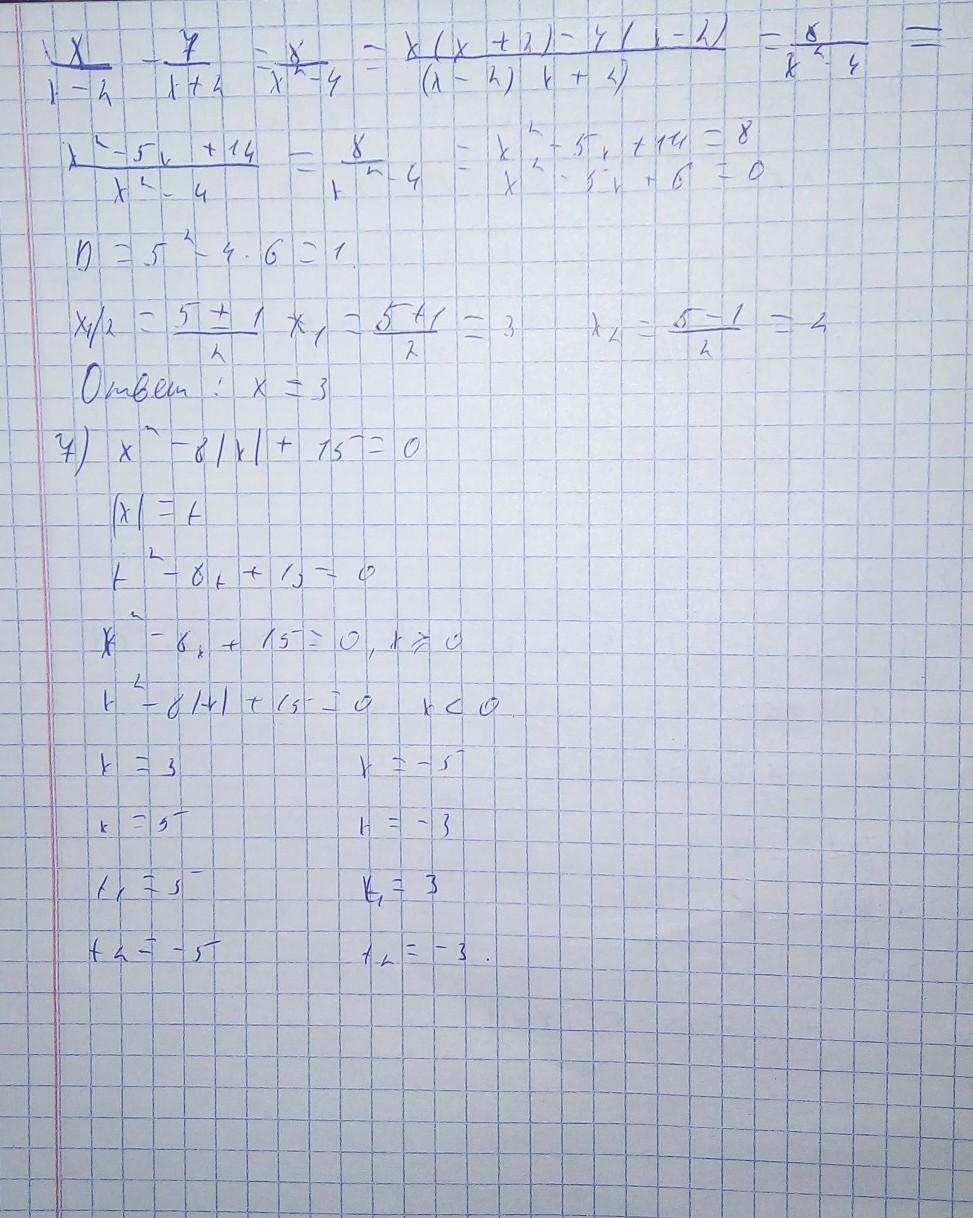 x/(x-2) - 7/(x+2) = 8/(x²-4) = (x(x+2)-7(x-2))/((x-2)(x+2)) = 8/(x²-4) =
(x²-5x+14)/(x²-4) = 8/(x²-4) = x²-5x+14=8
x²-5x+6=0
D = 5²-4·6=1
x1/2 = (5±1)/2 x₁ = (5+1)/2 = 3 x₂ = (5-1)/2 = 2
Ответ: x=3
7) x²-8|x|+15=0
|x|=t
t²-8t+15=0
x²-8x+15=0, x≥0
x²-8|x|+15=0 x<0
x=3 x=-5
x=5 x=-3
t₁=5 t₁=3
t₂=-5 t₂=-3.